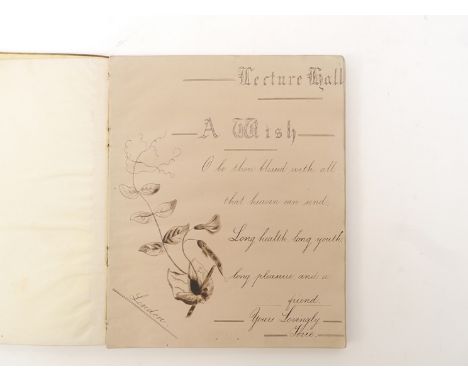 Lecture Hall
A Wish
O be thou blessed with all
that heaven can send,
Long health, long youth,
long pleasure and a
friend
Yours Lovingly
London